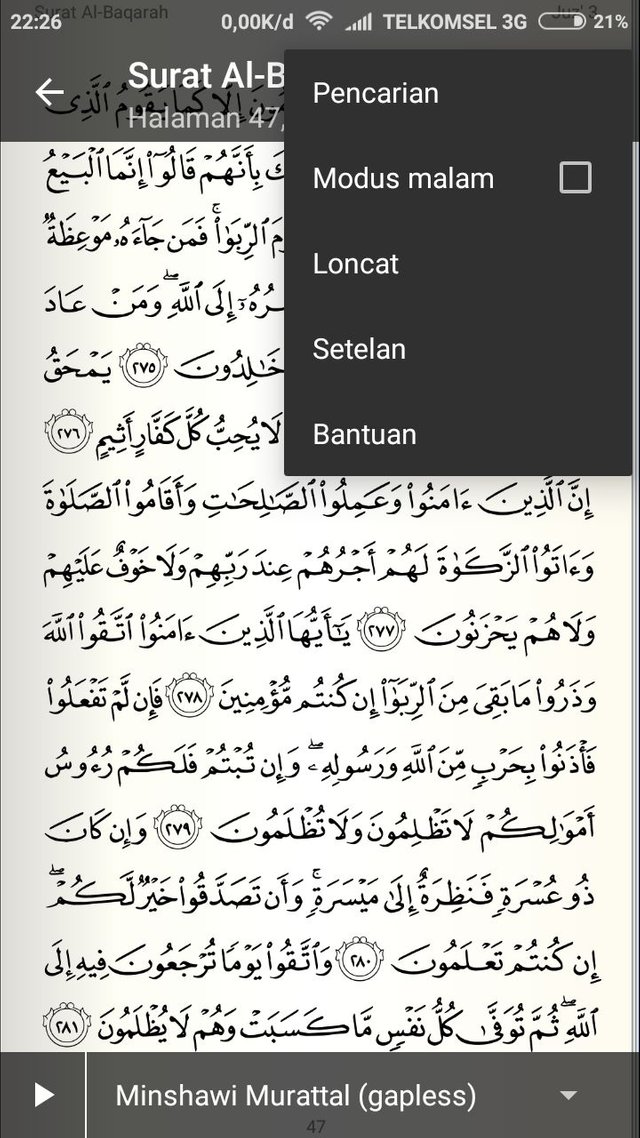 22:26
0,00K/d
TELKOMSEL 3G
21%
Surat Al-Baqarah
Juz' 3
Surat Al-B
Halaman 47,
Pencarian
Modus malam
Loncat
Setelan
Bantuan
إِلَّا كَمَا يَقُومُ ٱلَّذِى
بِأَنَّهُمْ قَالُوٓا۟ إِنَّمَا ٱلْبَيْعُ
ٱلرِّبَوٰا۟ ۚ فَمَن جَآءَهُۥ مَوْعِظَةٌ
إِلَى ٱللَّهِ ۖ وَمَنْ عَادَ
خَـٰلِدُونَ ٢٧٥ يَمْحَقُ
لَا يُحِبُّ كُلَّ كَفَّارٍ أَثِيمٍ ٢٧٦
إِنَّ ٱلَّذِينَ ءَامَنُوا۟ وَعَمِلُوا۟ ٱلصَّـٰلِحَـٰتِ وَأَقَامُوا۟ ٱلصَّلَوٰةَ
وَءَاتَوُا۟ ٱلزَّكَوٰةَ لَهُمْ أَجْرُهُمْ عِندَ رَبِّهِمْ وَلَا خَوْفٌ عَلَيْهِمْ
وَلَا هُمْ يَحْزَنُونَ ٢٧٧ يَـٰٓأَيُّهَا ٱلَّذِينَ ءَامَنُوا۟ ٱتَّقُوا۟ ٱللَّهَ
وَذَرُوا۟ مَا بَقِىَ مِنَ ٱلرِّبَوٰٓا۟ إِن كُنتُم مُّؤْمِنِينَ ٢٧٨ فَإِن لَّمْ تَفْعَلُوا۟
فَأْذَنُوا۟ بِحَرْبٍ مِّنَ ٱللَّهِ وَرَسُولِهِۦ ۖ وَإِن تُبْتُمْ فَلَكُمْ رُءُوسُ
أَمْوَٰلِكُمْ لَا تَظْلِمُونَ وَلَا تُظْلَمُونَ ٢٧٩ وَإِن كَانَ
ذُو عُسْرَةٍ فَنَظِرَةٌ إِلَىٰ مَيْسَرَةٍ ۚ وَأَن تَصَدَّقُوا۟ خَيْرٌ لَّكُمْ ۖ
إِن كُنتُمْ تَعْلَمُونَ ٢٨٠ وَٱتَّقُوا۟ يَوْمًا تُرْجَعُونَ فِيهِ إِلَى
ٱللَّهِ ۖ ثُمَّ تُوَفَّىٰ كُلُّ نَفْسٍ مَّا كَسَبَتْ وَهُمْ لَا يُظْلَمُونَ ٢٨١
Minshawi Murattal (gapless)
47